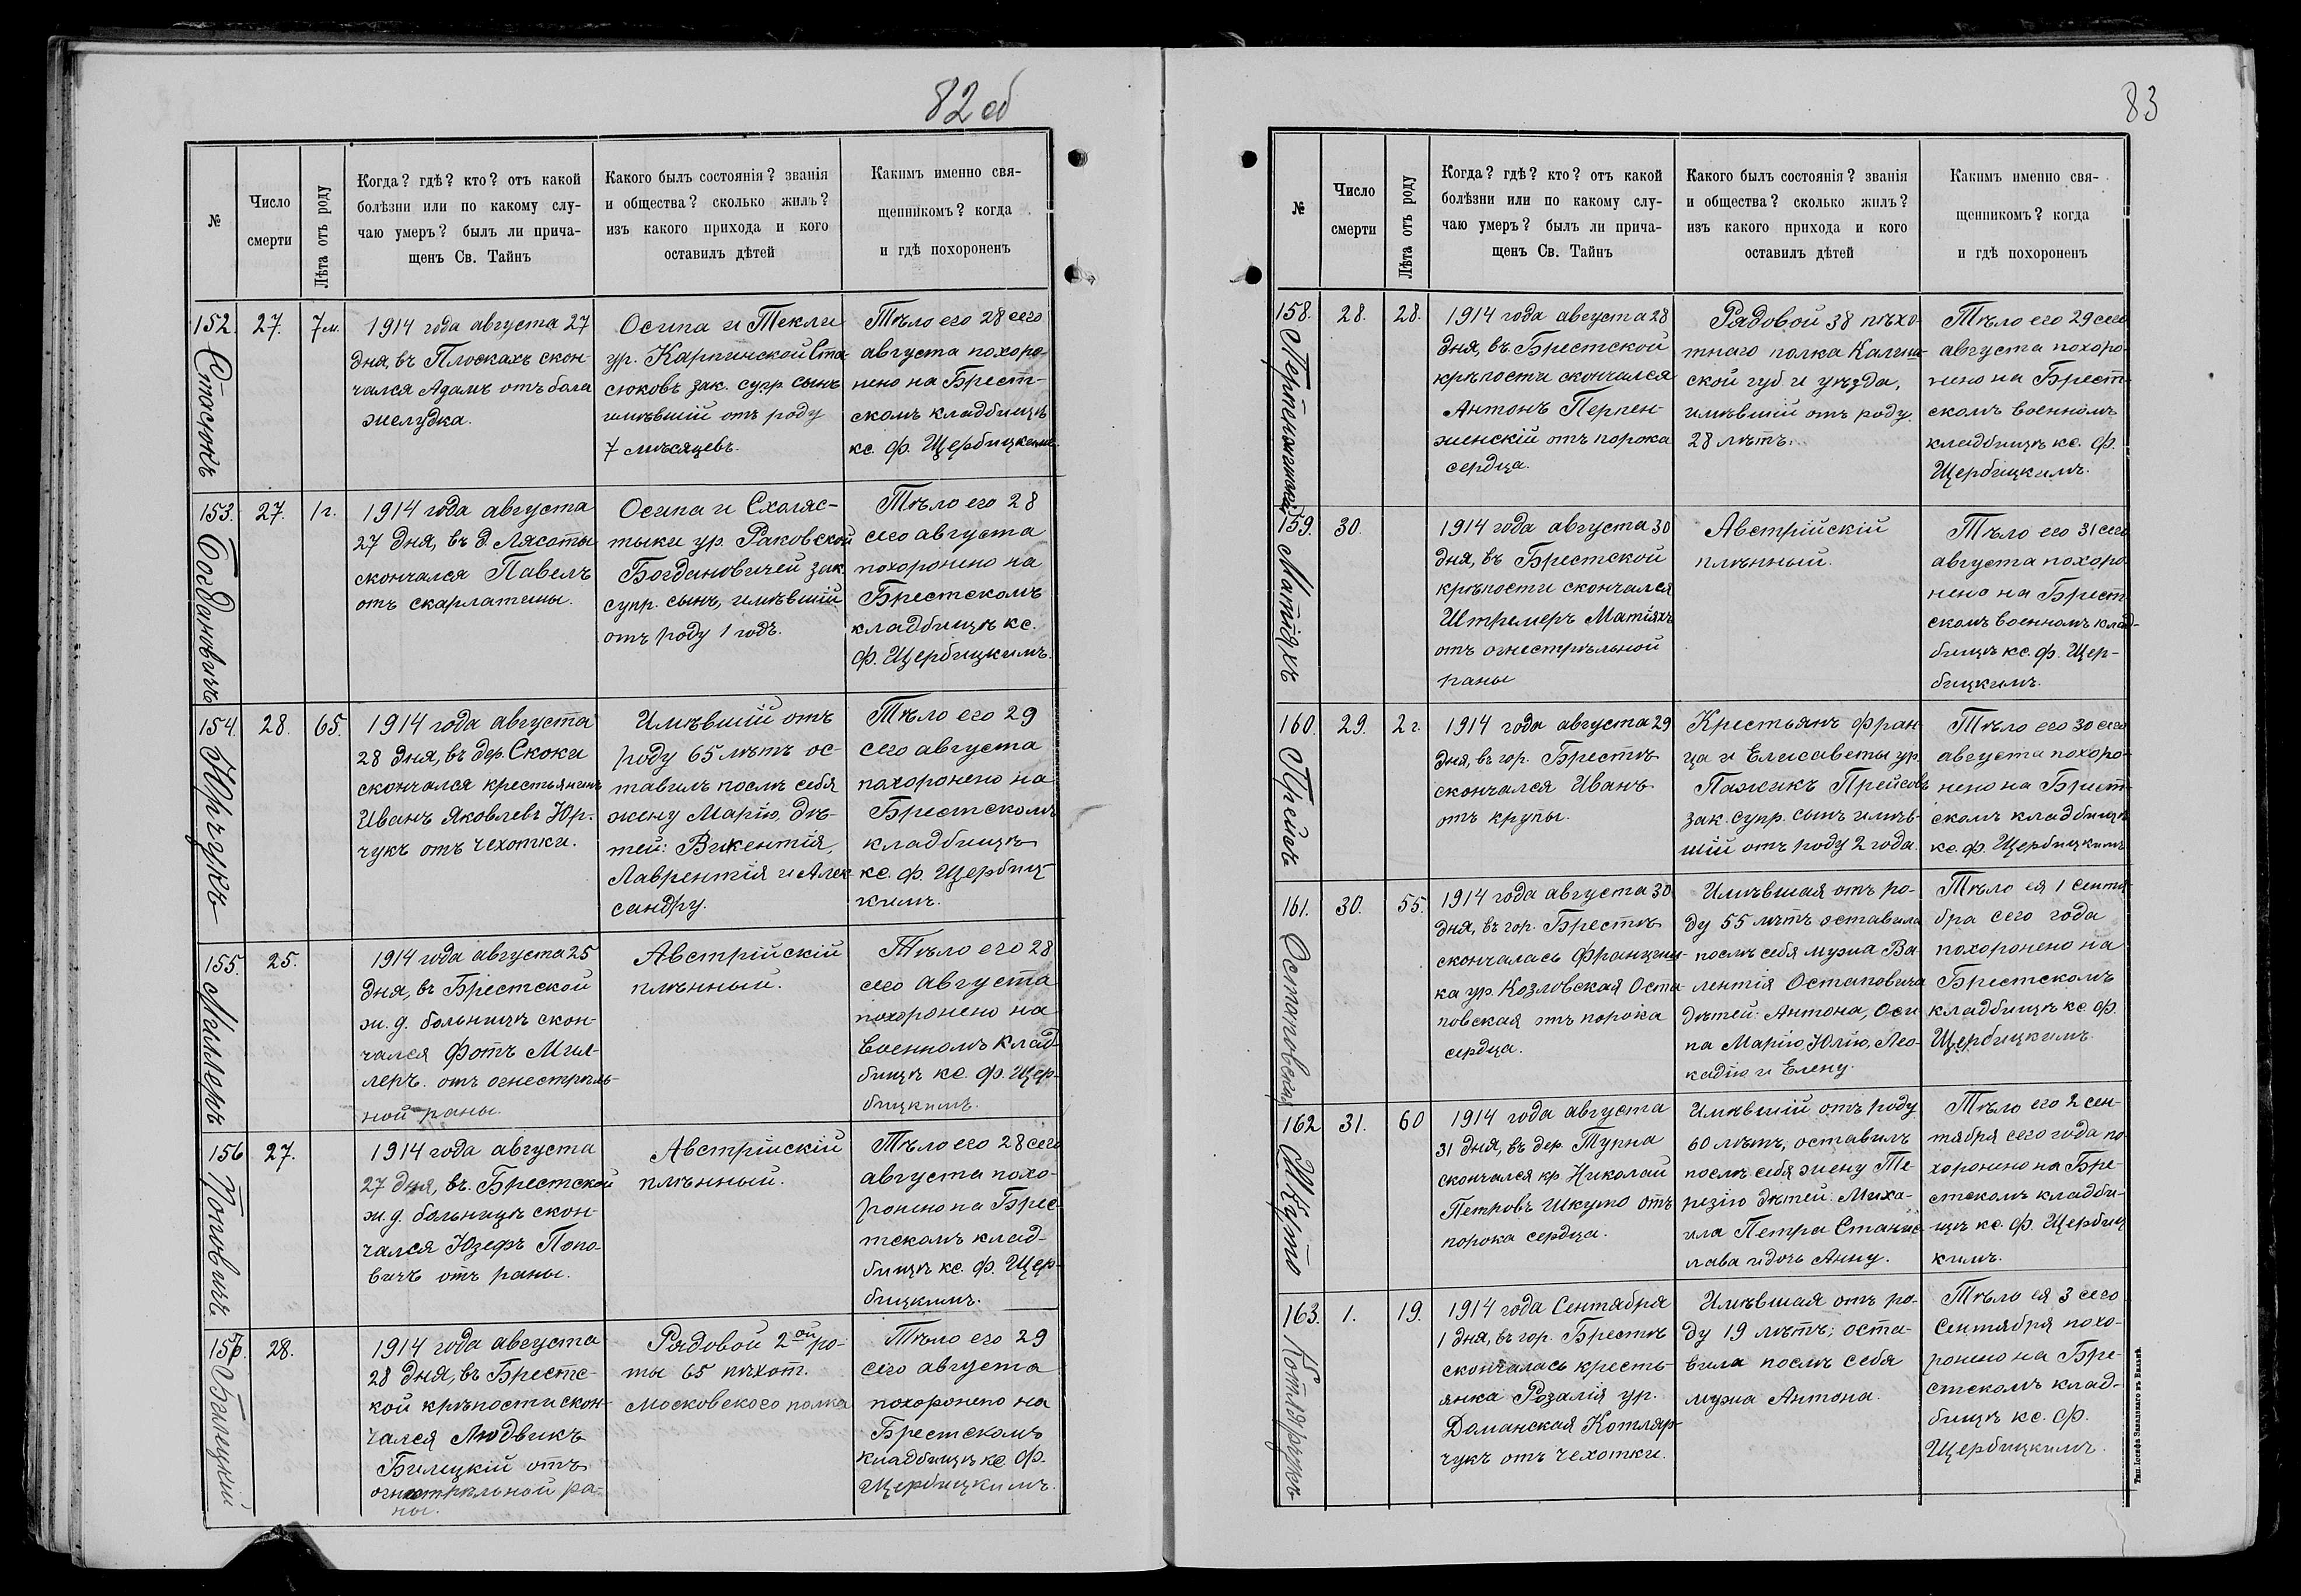 82 об
№
Число
смерти
Лѣта отъ роду
Когда? гдѣ? кто? отъ какой
болѣзни или по какому слу-
чаю умеръ? былъ ли прича-
щенъ Св. Тайнъ
Какого былъ состоянія? званія
и общества? сколько жилъ?
изъ какого прихода и кого
оставилъ дѣтей
Какимъ именно свя-
щенникомъ? когда
и гдѣ похороненъ
152.
Стасюкъ
27.
7 м.
1914 года августа 27
дня, въ Плоскахъ скон-
чался Адамъ отъ бола
желудка.
Осипа и Текли
ур. Карпинской Ста-
сюковъ зак. супр. сынъ
имѣвшій отъ роду
7 мѣсяцевъ.
Тѣло его 28 сего
августа похоро-
нено на Брест-
скомъ кладбищѣ
кс. Ф. Щербицкимъ.
153.
Богдановичъ
27.
1 г.
1914 года августа
27 дня, въ д. Лясоты
скончался Павелъ
отъ скарлатины.
Осипа и Схоляс-
тыки ур. Раковской
Богдановичей зак.
супр. сынъ, имѣвшій
отъ роду 1 годъ.
Тѣло его 28
сего августа
похоронено на
Брестскомъ
кладбищѣ кс.
Ф. Щербицкимъ.
154.
Юрчукъ
28.
65.
1914 года августа
28 дня, въ дер. Скоки
скончался крестьянинъ
Иванъ Яковлевъ Юр-
чукъ отъ чехотки.
Имѣвшій отъ
роду 65 лѣтъ ос-
тавилъ послѣ себя
жену Марію, дѣ-
тей: Викентія,
Лаврентія и Алек
сандру.
Тѣло его 29
сего августа
похоронено на
Брестскомъ
кладбищѣ
кс. Ф. Щербиц-
кимъ.
155.
Миллеръ
25.
1914 года августа 25
дня, въ Брестской
ж. д. больницѣ скон-
чался Фотъ Мил-
леръ отъ огнестрѣль-
ной раны.
Австрійскій
плѣнный.
Тѣло его 28
сего августа
похоронено на
военномъ клад-
бищѣ кс. Ф. Щер-
бицкимъ.
156
Поповичъ
27.
1914 года августа
27 дня, въ Брестской
ж. д. больницѣ скон-
чался Юзефъ Попо-
вичъ отъ раны.
Австрійскій
плѣнный.
Тѣло его 28 сего
августа похо-
ронено на Брес-
тскомъ клад-
бищѣ кс. Ф. Щер-
бицкимъ.
157.
Билецкій
28.
1914 года августа
28 дня, въ Брестс-
кой крѣпости скон-
чался Людвикъ
Билецкій отъ
огнестрѣльной ра-
ны.
Рядовой 2ой ро-
ты 65 пѣхот.
Московского полка
Тѣло его 29
сего августа
похоронено на
Брестскомъ
кладбищѣ кс. Ф.
Щербицкимъ.
83
№
Число
смерти
Лѣта отъ роду
Когда? гдѣ? кто? отъ какой
болѣзни или по какому слу-
чаю умеръ? былъ ли прича-
щенъ Св. Тайнъ
Какого былъ состоянія? званія
и общества? сколько жилъ?
изъ какого прихода и кого
оставилъ дѣтей
Какимъ именно свя-
щенникомъ? когда
и гдѣ похороненъ
158.
28.
28.
1914 года августа 28
дня, въ Брестской
крѣпости скончался
Антонъ Перпен-
женскій отъ порока
сердца.
Рядовой 38 пѣхо-
тнаго полка Калиш-
ской губ. и уѣзда,
имѣвшій отъ роду
28 лѣтъ.
Тѣло его 29 сего
августа похоро-
нено на Брест-
скомъ военномъ
кладбищѣ кс. Ф.
Щербицкимъ.
159.
Матіяхъ
30.
1914 года августа 30
дня, въ Брестской
крѣпости скончался
Штремеръ Матіяхъ
отъ огнестрѣльной
раны
Австрійскій
плѣнный.
Тѣло его 31 сего
августа похоро-
нено на Брест-
скомъ военномъ клад-
бищѣ кс. Ф. Щер-
бицкимъ.
160.
Прейсъ
29.
2 г.
1914 года августа 29
дня, въ гор. Брестѣ
скончался Иванъ
отъ крупы.
Крестьянъ Фран-
ца и Елисаветы ур.
Пажикъ Прейсовъ
зак. супр. сынъ имѣв-
шій отъ роду 2 года.
Тѣло его 30 сего
августа похоро-
нено на Брест-
скомъ кладбищѣ
кс. Ф. Щербицкимъ
161.
Остаповская
30.
55.
1914 года августа 30
дня, въ гор. Брестѣ
скончалась Францишъ-
ка ур. Козловская Оста-
повская отъ порока
сердца.
Имѣвшая отъ ро-
ду 55 лѣтъ оставила
послѣ себя мужа Ва
лентія Остаповича
дѣтей: Антона, Оси
па Марію, Юлію, Лео-
кадію и Елену.
Тѣло ея 1 сентя-
бра сего года
похоронено на
Брестскомъ
кладбищѣ кс. Ф.
Щербицкимъ.
162
Шкуто
31.
60
1914 года августа
31 дня, въ дер. Турна
скончался кр Николай
Петровъ Шкуто отъ
порока сердца.
Имѣвшій отъ роду
60 лѣтъ, оставилъ
послѣ себя жену Те-
резію дѣтей: Миха-
ила Петра Станис-
лава и дочь Анну.
Тѣло его 2 сен-
тября сего года по-
хоронено на Бре-
стскомъ кладби-
щѣ кс. Ф. Щербиц
кимъ.
163.
Котлярчукъ
1.
19.
1914 года Сентября
1 дня, въ гор. Брестѣ
скончалась кресть-
янка Розалія ур.
Доманская Котляр-
чукъ отъ чехотки.
Имѣвшая отъ ро-
ду 19 лѣтъ; оста-
вила послѣ себя
мужа Антона.
Тѣло ея 3 сего
Сентября похо-
ронено на Бре-
стскомъ клад-
бищѣ кс. Ф.
Щербицкимъ.
Тип. Іосифа Завадзкаго въ Вильнѣ.